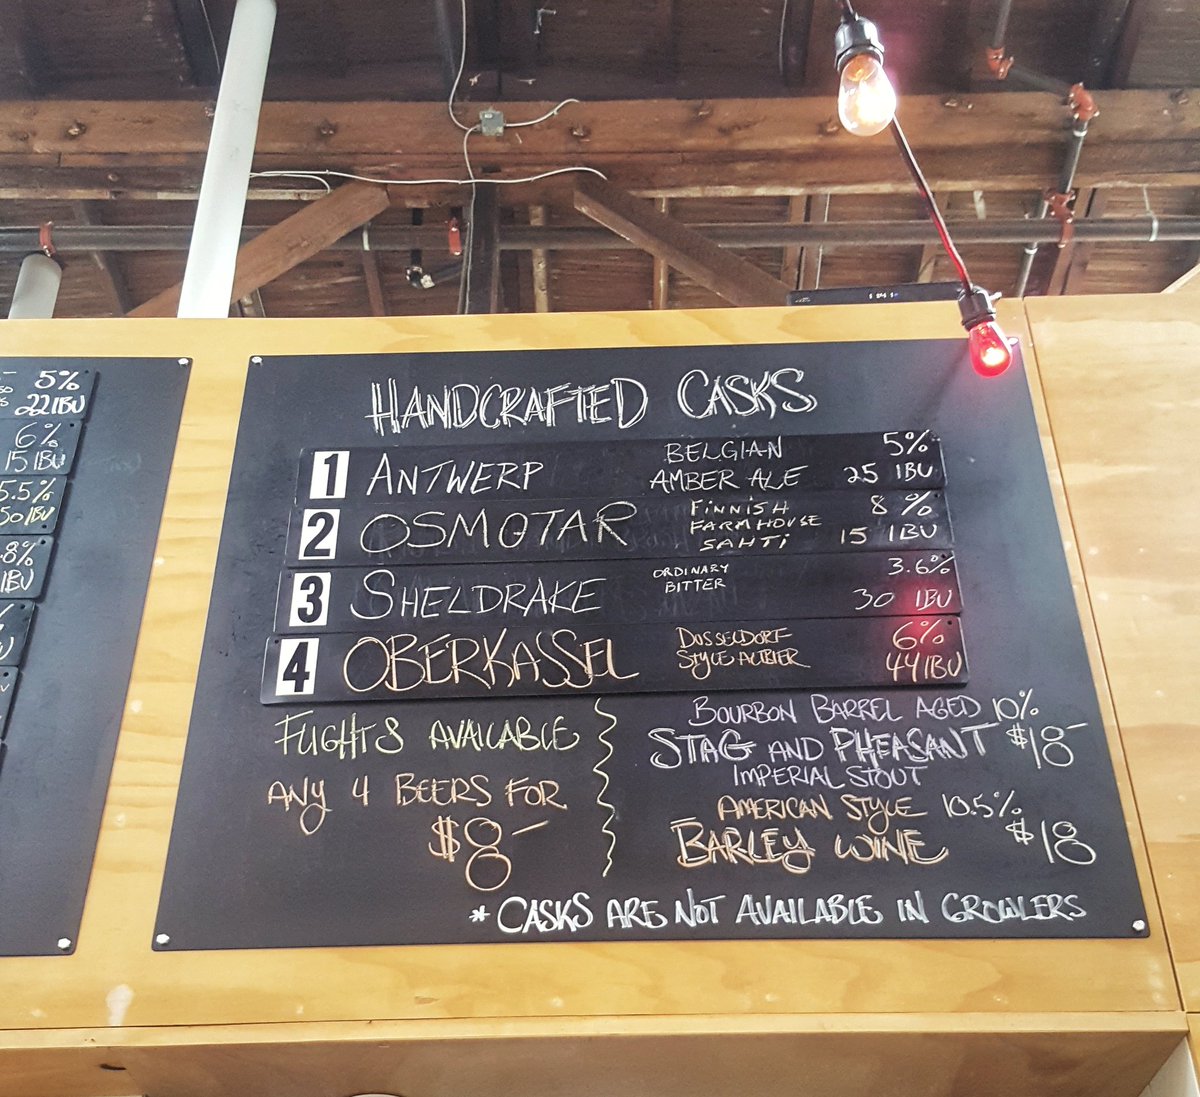 5%
22 IBU
6%
15 IBU
5.5%
50 IBU
.8%
IBU
HANDCRAFTED CASKS
1 ANTWERP BELGIAN AMBER ALE 5% 25 IBU
2 OSMOTAR FINNISH FARMHOUSE SAHTI 8% 15 IBU
3 SHELDRAKE ORDINARY BITTER 3.6% 30 IBU
4 OBERKASSEL DUSSELDORF STYLE ALTBIER 6% 44 IBU
FLIGHTS AVAILABLE
ANY 4 BEERS FOR
$8-
BOURBON BARREL AGED 10%
STAG AND PHEASANT $18-
IMPERIAL STOUT
AMERICAN STYLE 10.5%
BARLEY WINE $18
* CASKS ARE NOT AVAILABLE IN GROWLERS